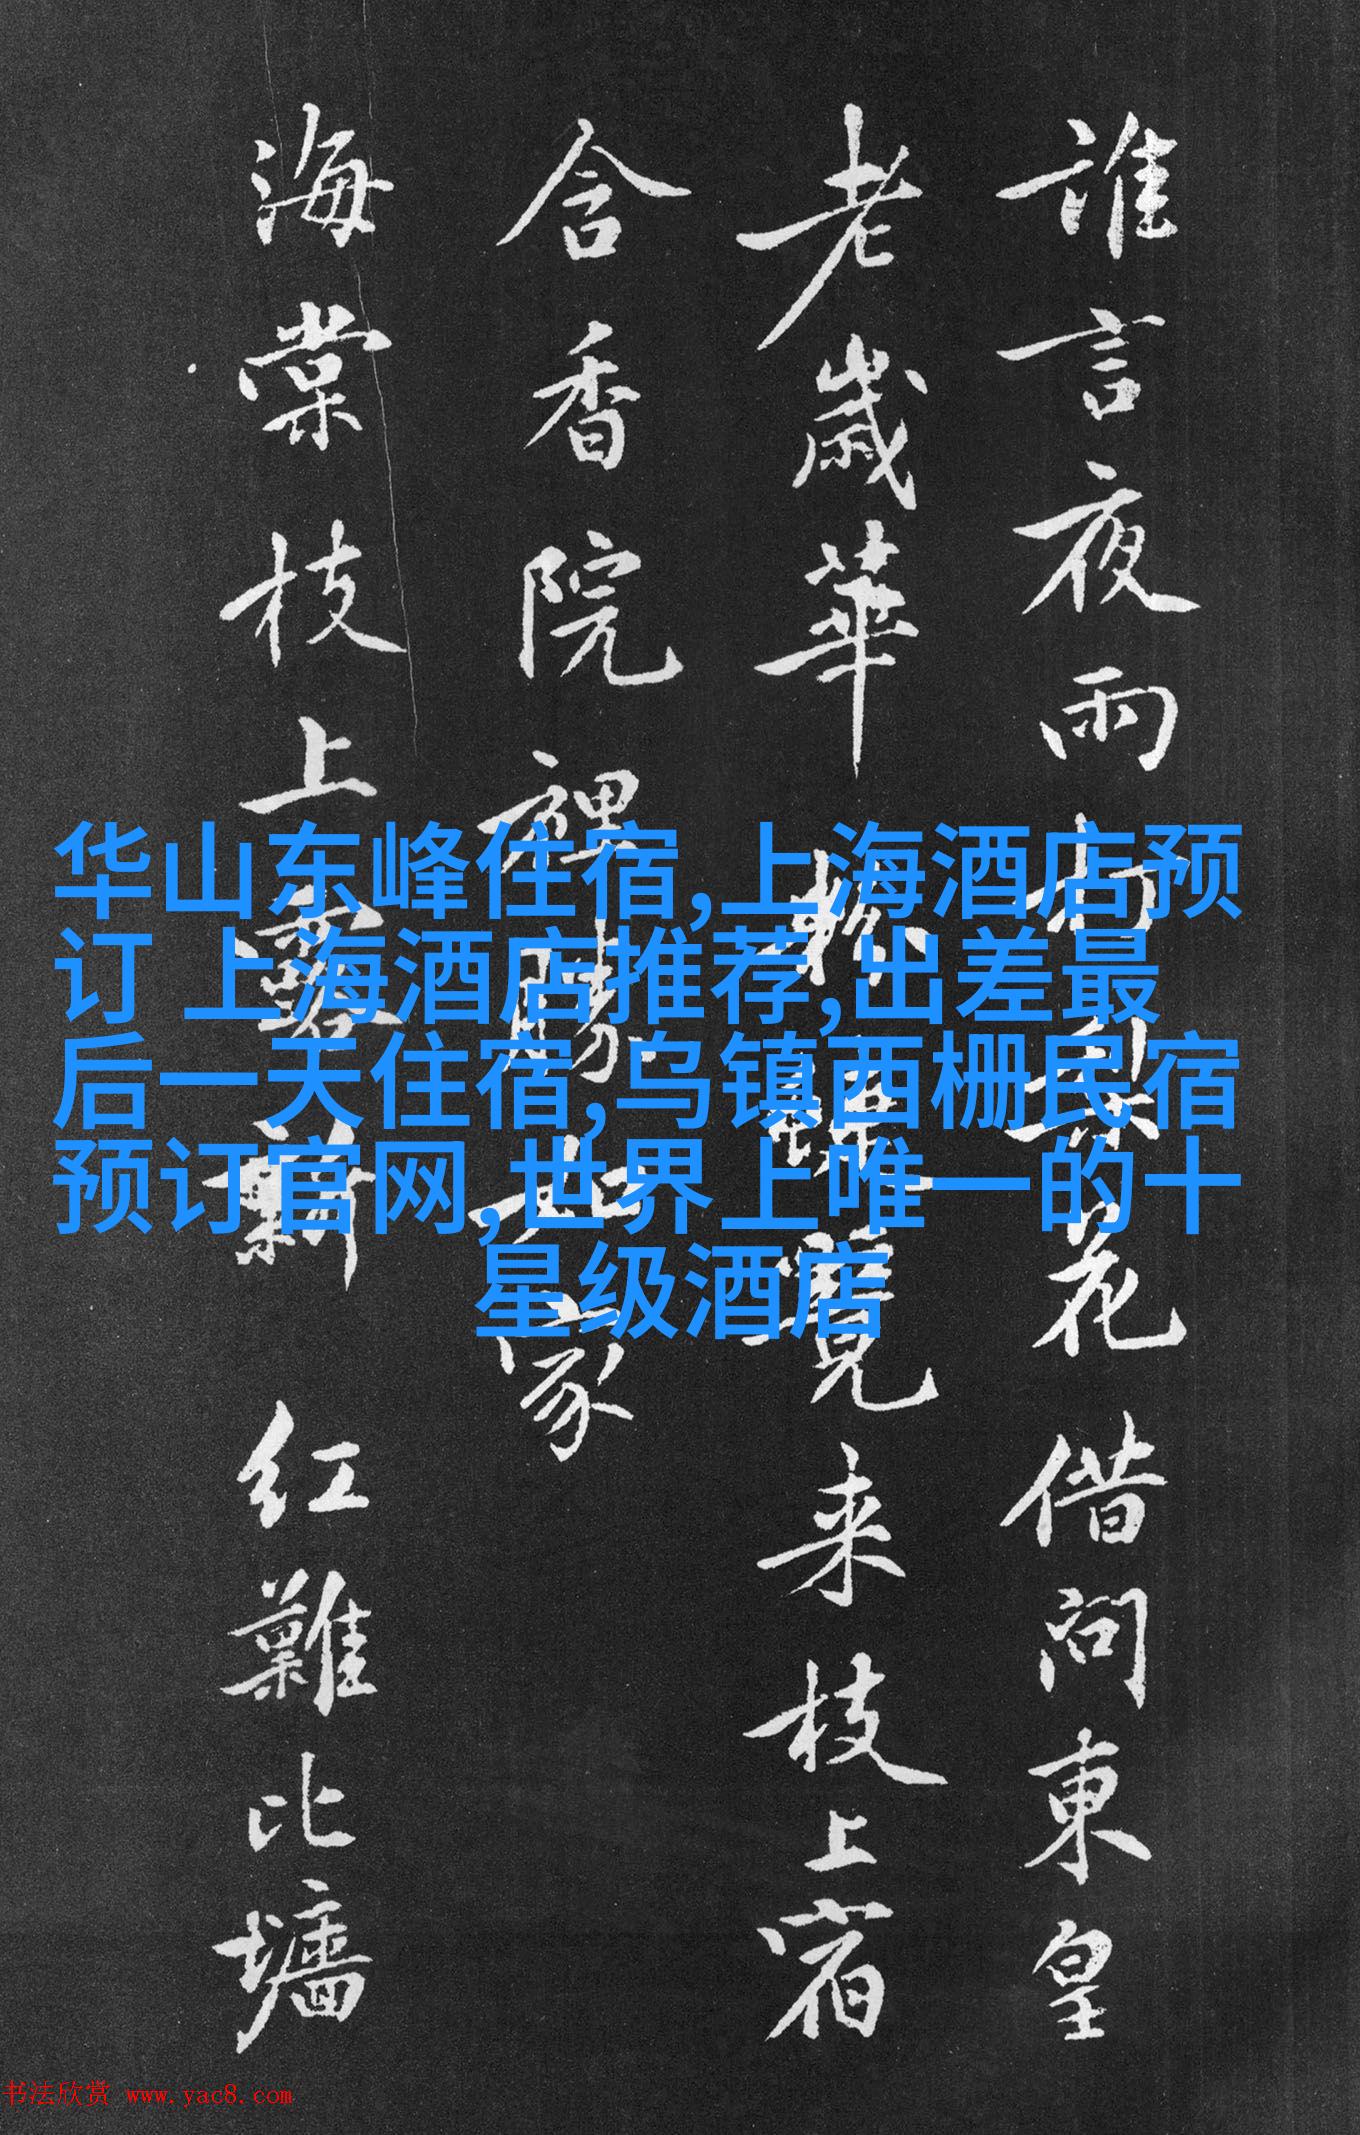 誰言夜雨打梨花借问東皇
老歲華粉蝶覓来枝上宿
含香院裡勝如家
海棠枝上露新红難比墻
华山东峰住宿,上海酒店预
订 上海酒店推荐,出差最
后一天住宿,乌镇西栅民宿
预订官网,世界上唯一的十
星级酒店
书法欣赏 www.yac8.com